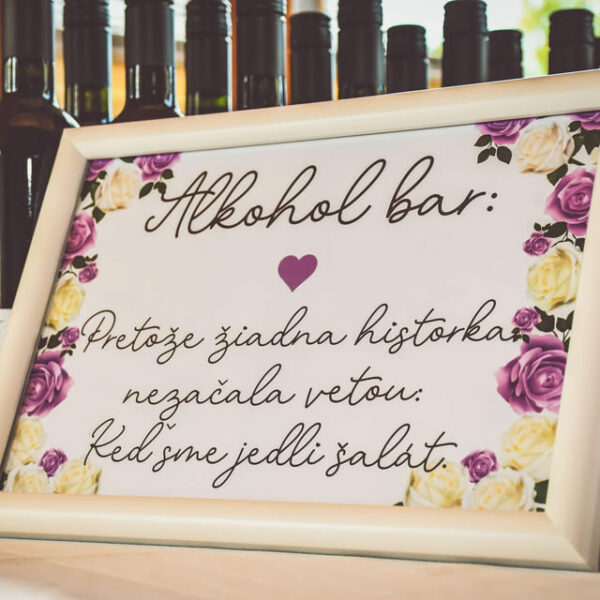 Alkohol bar:
Pretože žiadna historka
nezačala vetou:
Keď šme jedli šalát.